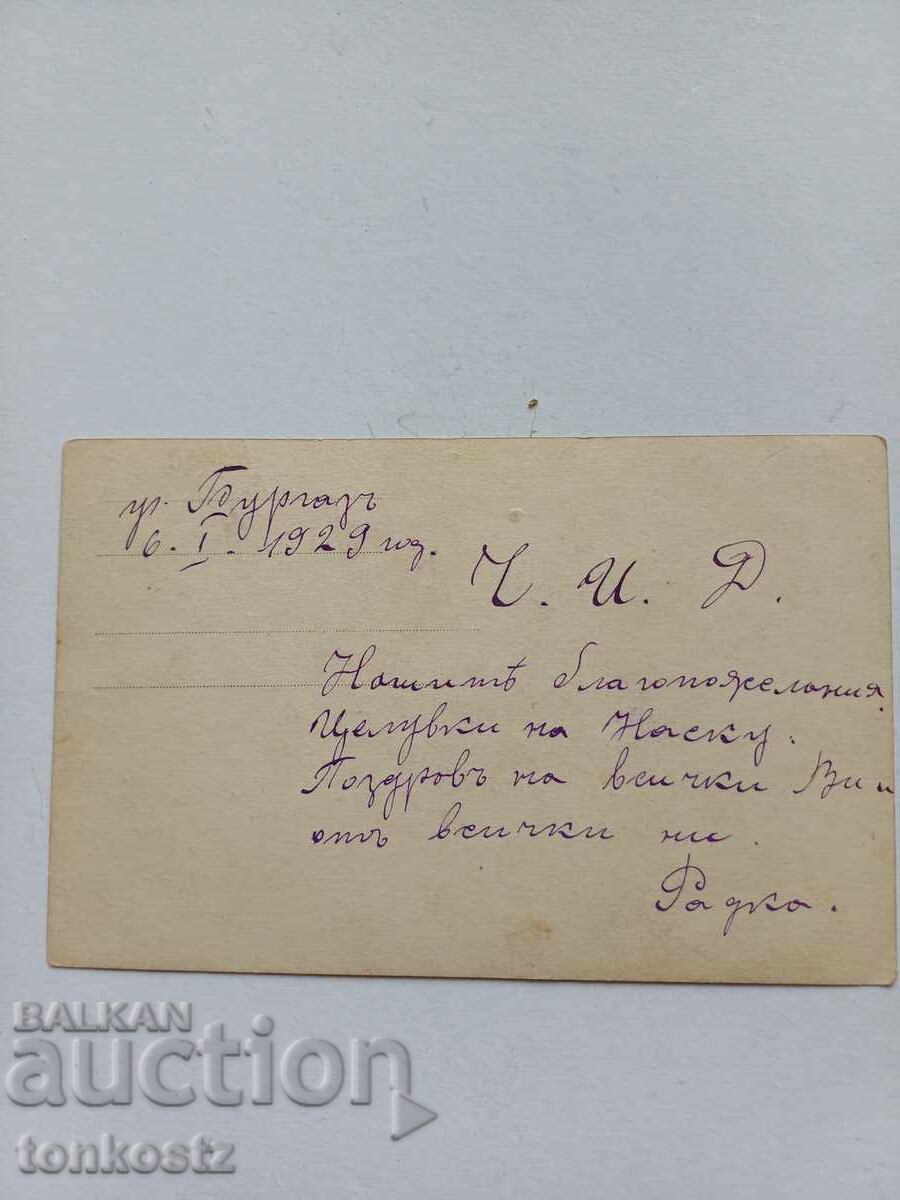 гр. Бургазъ
6. I. 1929 год.
Ч. И. Д.
Нашитѣ благопожелания.
Целувки на Наску.
Поздровъ на всички Ви и
отъ всички ни.
Радка.
BALKAN
auction
tonkostz